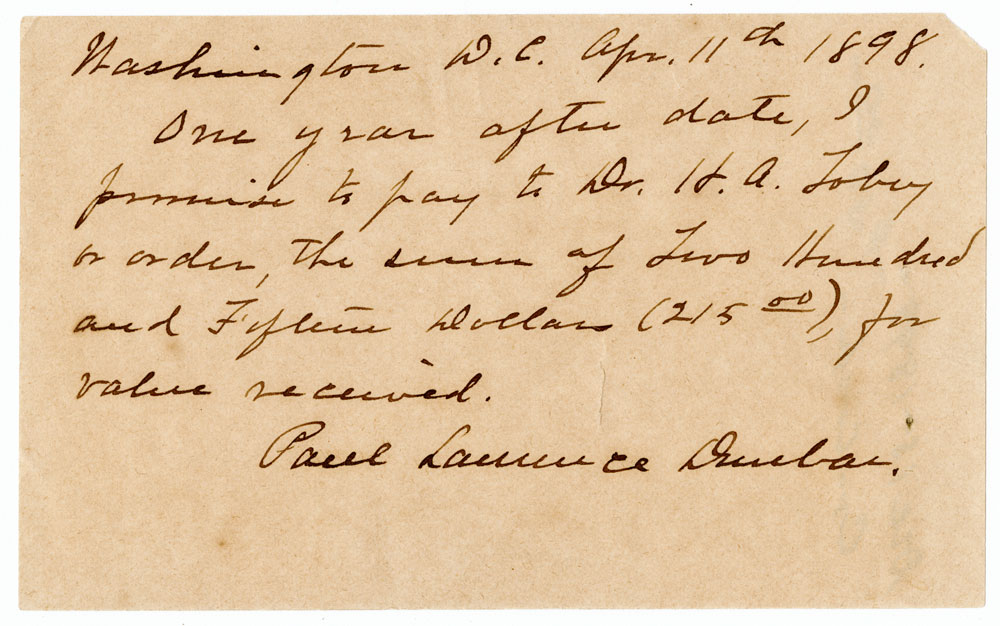 Washington D.C. Apr. 11th 1898.
One year after date, I
promise to pay to Dr. H. A. Tobey
or order, the sum of Two Hundred
and Fifteen Dollars (215 00), for
value received.
Paul Laurence Dunbar.